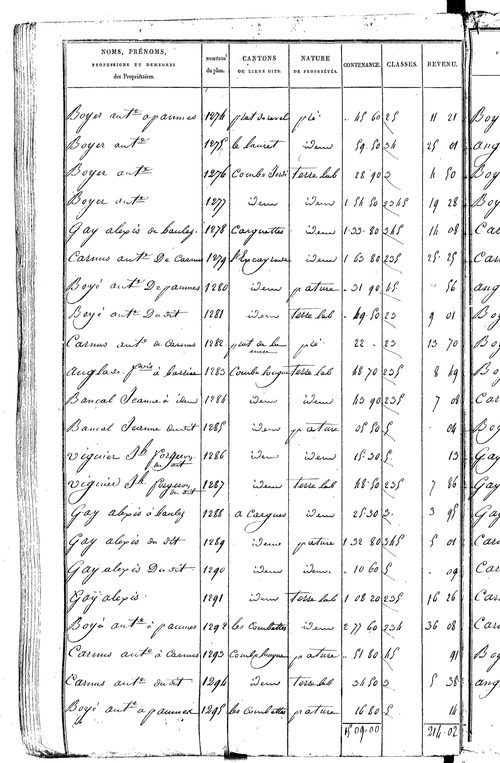 NOMS, PRÉNOMS, PROFESSIONS ET DEMEURES des Propriétaires. NUMÉROS du plan. CANTONS OU LIEUX DITS. NATURE DE PROPRIÉTÉS. CONTENANCE. CLASSES. REVENU.
Boyer ant.e a paumes 1274 prat de revel pré 45 60 25 11 21
Boyer ant.e 1275 le lauret idem 59 50 34 25 01
Boyer ant.e 1276 Combe terre lab 28 90 3 4 50
Boyer ant.e 1277 idem idem 1 54 50 2345 19 28
Gay alexis de boulez 1278 Carguettes idem 1 33 80 345 14 08
Carnus ant.e De Carnus 1279 idem 1 63 80 235 25 25
Boyé ant.e De paumes 1280 idem pature 31 90 45 56
Boyé ant.e Dudit 1281 idem terre lab 49 50 23 9 01
Carnus ant.e de Carnus 1282 prat de la pré 22 23 13 70
anglade à 1283 Combe longue terre lab 48 70 235 8 49
Bancal Jeanne à idem 1284 idem idem 43 90 235 7 08
Bancal Jeanne dudit 1285 idem pature 05 50 5 04
Viguier Jh du dit 1286 idem idem 15 30 5 13
Viguier Jh du dit 1287 idem terre lab 48 50 235 7 86
Gay alexis à boulez 1288 a Cargues idem 25 30 3 3 95
Gay alexis du dit 1289 idem pature 1 32 80 345 5 01
Gay alexis Du dit 1290 idem idem 10 60 5 09
Gay alexis 1291 idem terre lab 1 08 20 235 16 26
Boyé ant.e à paumes 1292 les Combettes idem 2 77 60 234 36 08
Carnus ant.e à Carnus 1293 Combe longue pature 51 80 45 91
Carnus ant.e du dit 1294 idem terre lab 34 50 3 5 38
Boyé ant.e a paumes 1295 les Combettes pature 16 80 5 14
15 09 00 214 02